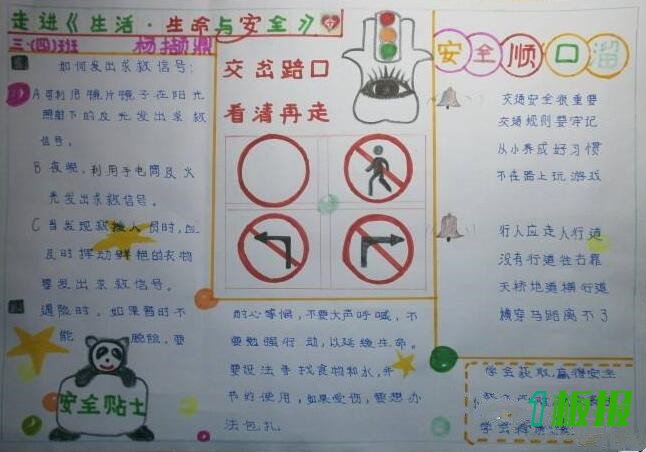 走进《生活·生命与安全》
三.(四)班
杨撷鼎
如何发出求救信号:
A 可利用镜片镜子在阳光
照射下的反光发出求救
信号。
B 夜晚,利用手电筒及火
光发出求救信号。
C 当发现救援人员时,应
及时挥动鲜艳的衣物
等发出求救信号。
遇险时。如果暂时不
能 脱险,要
安全贴士
交岔路口
看清再走
耐心等候,不要大声呼喊,不
要勉强行动,以延续生命。
要设法寻找食物和水,并
节约使用,如果受伤,要想办
法包扎。
安全顺口溜
交通安全很重要
交通规则要牢记
从小养成好习惯
不在路上玩游戏
行人应走人行道
没有行道往右靠
天桥地道横行道
横穿马路离不了
学会获取,赢得安全
学会
板报